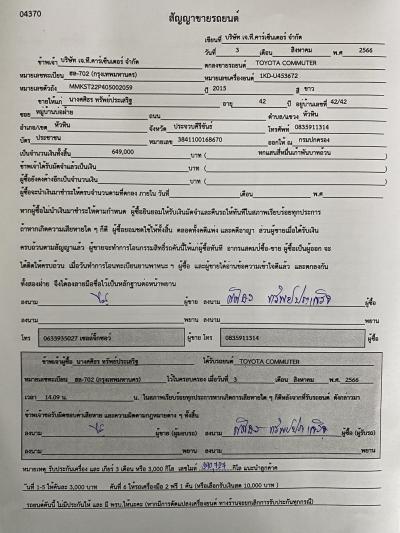 04370
สัญญาขายรถยนต์
เขียนที่ บริษัท เจ.ที.คาร์เซ็นเตอร์ จำกัด
วันที่ 3 เดือน สิงหาคม พ.ศ 2566
ข้าพเจ้า บริษัท เจ.ที.คาร์เซ็นเตอร์ จำกัด ตกลงขายรถยนต์ TOYOTA COMMUTER
หมายเลขทะเบียน ฮล-702 (กรุงเทพมหานคร) หมายเลขเครื่องยนต์ 1KD-U453672
หมายเลขตัวถัง MMKST22P405002059 ปี 2015 สี ขาว
ขายให้แก่ นางศศิธร ทรัพย์ประเสริฐ อายุ 42 ปี อยู่บ้านเลขที่ 42/42
ซอย หมู่บ้านบ่อฝ้าย ถนน ตำบล/แขวง หัวหิน
อำเภอ/เขต หัวหิน จังหวัด ประจวบคีรีขันธ์ โทรศัพท์ 0835911314
บัตร ประชาชน หมายเลข 3841100168670 ออกให้ ณ กรมปกครอง
เป็นจำนวนเงินทั้งสิ้น 649,000 บาท ( หกแสนสี่หมื่นเก้าพันบาทถ้วน
ข้าพเจ้าได้รับมัดจำแล้วเป็นเงิน บาท (
ผู้ซื้อยังคงค้างอีกเป็นจำนวนเงิน บาท (
ผู้ซื้อจะนำเงินมาชำระให้ครบจำนวนตามที่ตกลง ภายใน วันที่ เดือน พ.ศ
หากผู้ซื้อไม่นำเงินมาชำระให้ตามกำหนด ผู้ซื้อยินยอมให้ริบเงินมัดจำและคืนรถให้ทันทีในสภาพเรียบร้อยทุกประการ
ถ้าหากเกิดความเสียหายใด ๆ ก็ดี ผู้ซื้อยอมชดใช้ให้ทั้งสิ้น ตลอดทั้งคดีแพ่ง และคดีอาญา ส่วนผู้ขายเมื่อได้รับเงิน
ครบถ้วนตามสัญญาแล้ว ผู้ขายจะทำการโอนกรรมสิทธิ์รถคันนี้ให้แก่ผู้ซื้อทันที อากรแสตมป์ซื้อ-ขาย ผู้ซื้อเป็นผู้ออก จะ
ได้ติดให้ครบถ้วน เมื่อวันทำการโอนทะเบียนยานพาหนะ ฯ ผู้ซื้อ และผู้ขายได้อ่านข้อความเข้าใจดีแล้ว และตกลงกัน
ทั้งสองฝ่าย จึงได้ลงลายมือชื่อไว้เป็นหลักฐานต่อหน้าพยาน
ลงนาม ผู้ขาย ลงนาม ศศิธร ทรัพย์ประเสริฐ ผู้ซื้อ
ลงนาม พยาน ลงนาม พยาน
โทร 0633935027 เซลล์จี๊กซอว์ ผู้ขาย โทร 0835911314 ผู้ซื้อ
ข้าพเจ้าผู้ซื้อ นางศศิธร ทรัพย์ประเสริฐ ได้รับรถยนต์ TOYOTA COMMUTER
หมายเลขทะเบียน ฮล-702 (กรุงเทพมหานคร) ไว้ในครอบครอง เมื่อวันที่ 3 เดือน สิงหาคม พ.ศ. 2566
เวลา 14.09 น. น. ในสภาพเรียบร้อยทุกประการหากเกิดการเสียหายใด ๆ ก็ดีหลังจากที่รับรถยนต์ ดังกล่าวมา
ข้าพเจ้าขอรับผิดชอบค่าเสียหาย และความผิดตามกฎหมายต่าง ๆ ทั้งสิ้น
ลงนาม ผู้ขาย (ผู้มอบรถ) ลงนาม ศศิธร ทรัพย์ประเสริฐ ผู้ซื้อ (ผู้รับรถ)
ลงนาม พยาน ลงนาม พยาน
หมายเหตุ รับประกันเครื่อง และ เกียร์ 3 เดือน หรือ 3,000 กิโล เลขไมล์ กิโล แนะนำลูกค้าด
วันที่ 1-5 ให้คันละ 3,000 บาท คันที่ 6 ให้รถเครื่องมือ 2 ฟรี 1 คัน (หรือเลือกรับเงินสด 10,000 บาท )
รถยนต์คันนี้ ไม่มีประกันให้ และ มี พรบ.ให้นะคะ (หากมีการดัดแปลงเครื่องยนต์ ทางร้านจะยกเลิกการรับประกันทุกกรณี)